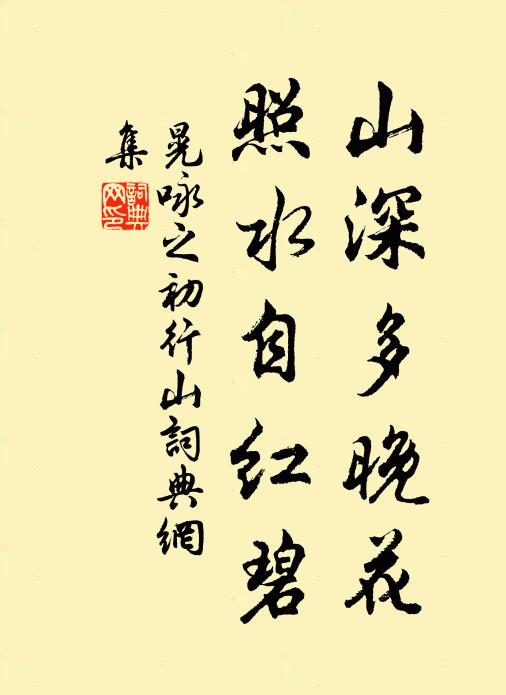 山深多晚花
照水自红碧
晁咏之初行山詞典網
集
詞典網印